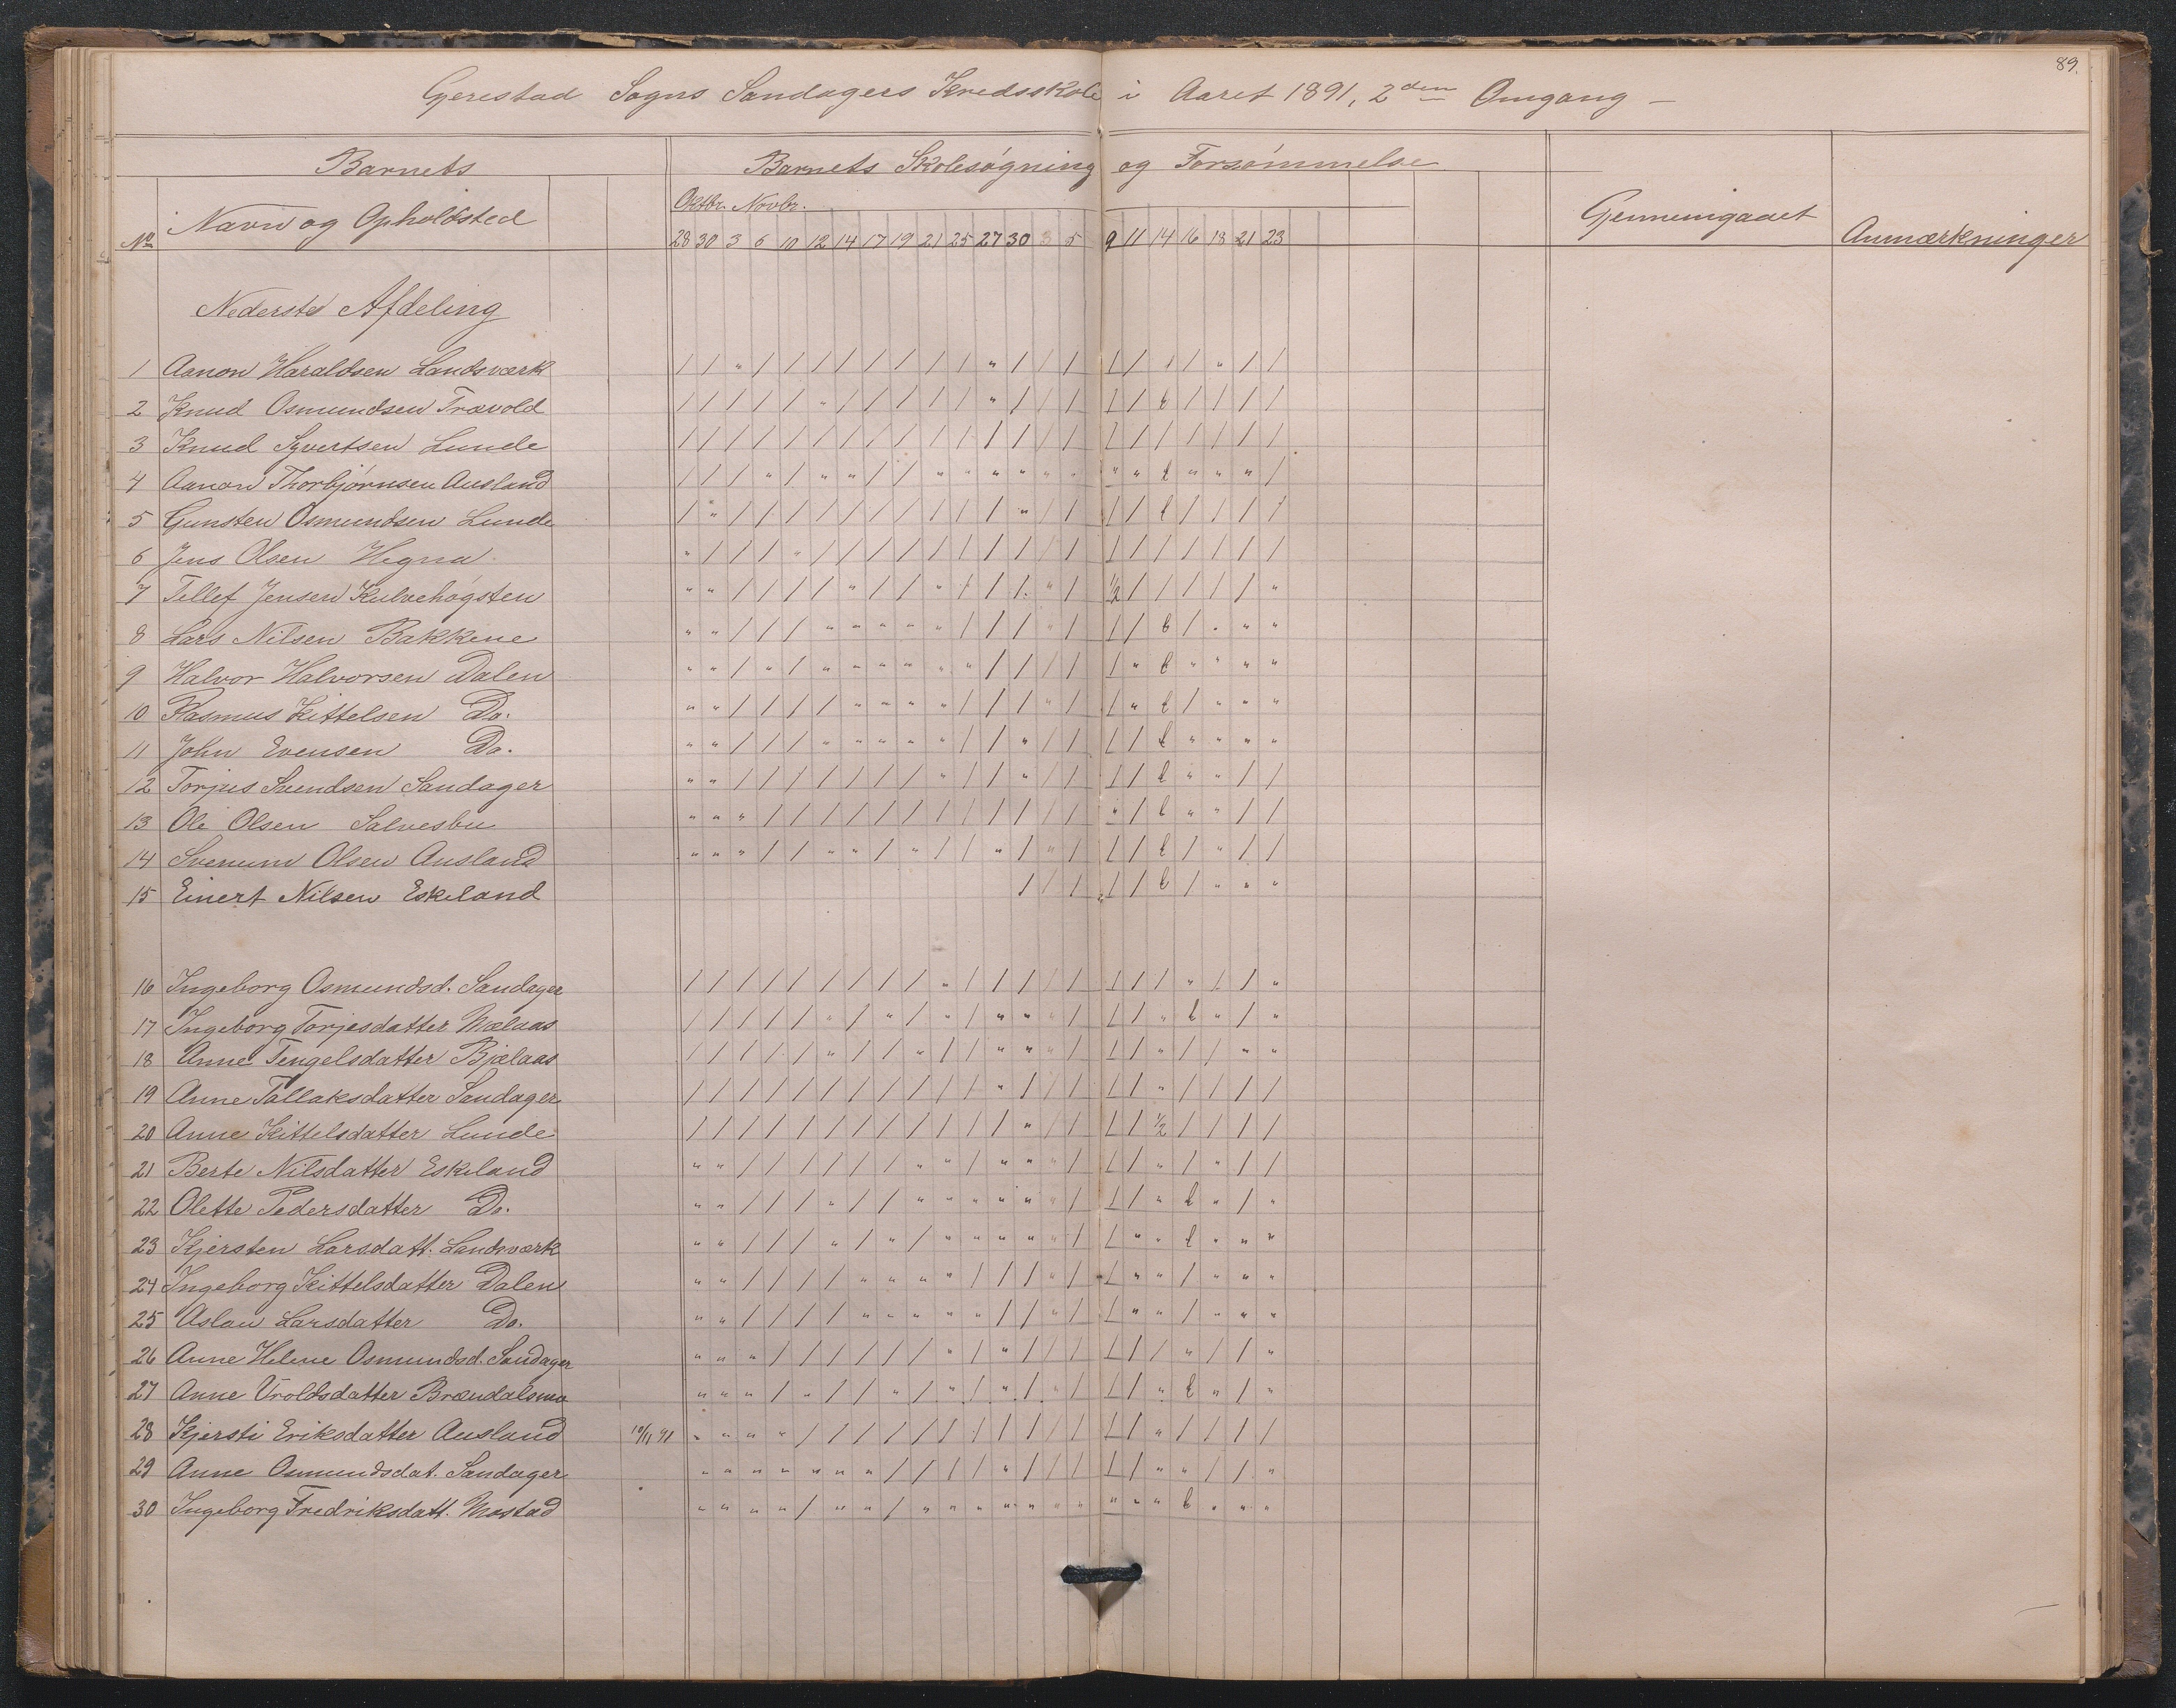 89.
Gjerestad Sogns Sandagers Kredsskole i Aaret 1891, 2den Omgang —
Barnets Barnets Skolesøgning og Forsømmelse
No Navn og Opholdsted Oktbr. Novbr. Gjennemgaaet Anmærkninger
28 30 3 6 10 12 14 17 19 21 25 27 30 3 5 9 11 14 16 18 21 23
Nederste Afdeling
1 Aanon Haraldsen Landsværk
2 Knud Osmundsen Trævold
3 Knud Syvertsen Lunde
4 Aanon Thorbjørnsen Ausland
5 Gunsten Osmundsen Lunde
6 Jens Olsen Hegna
7 Tellef Jensen Kulvehogsten
8 Lars Nilsen Bakkene
9 Halvor Halvorsen Dalen
10 Rasmus Kittelsen Do.
11 John Evensen Do.
12 Torjus Svendsen Sandager
13 Ole Olsen Salvesbu
14 Svenum Olsen Ausland
15 Einert Nilsen Eskeland
16 Ingeborg Osmundsd. Sandager
17 Ingeborg Torjesdatter Mælaas
18 Anne Tengelsdatter Bjælaas
19 Anne Tallaksdatter Sandager
20 Anne Kittelsdatter Lunde
21 Berte Nilsdatter Eskeland
22 Olette Pedersdatter Do.
23 Kjersten Larsdatt. Landsværk
24 Ingeborg Kittelsdatter Dalen
25 Aslau Larsdatter Do.
26 Anne Helene Osmundsd. Sandager
27 Anne Uroldsdatter Brændalsmo
28 Kjersti Eriksdatter Ausland 10/11 91
29 Anne Osmundsdat. Sandager
30 Ingeborg Fredriksdatt. Mostad